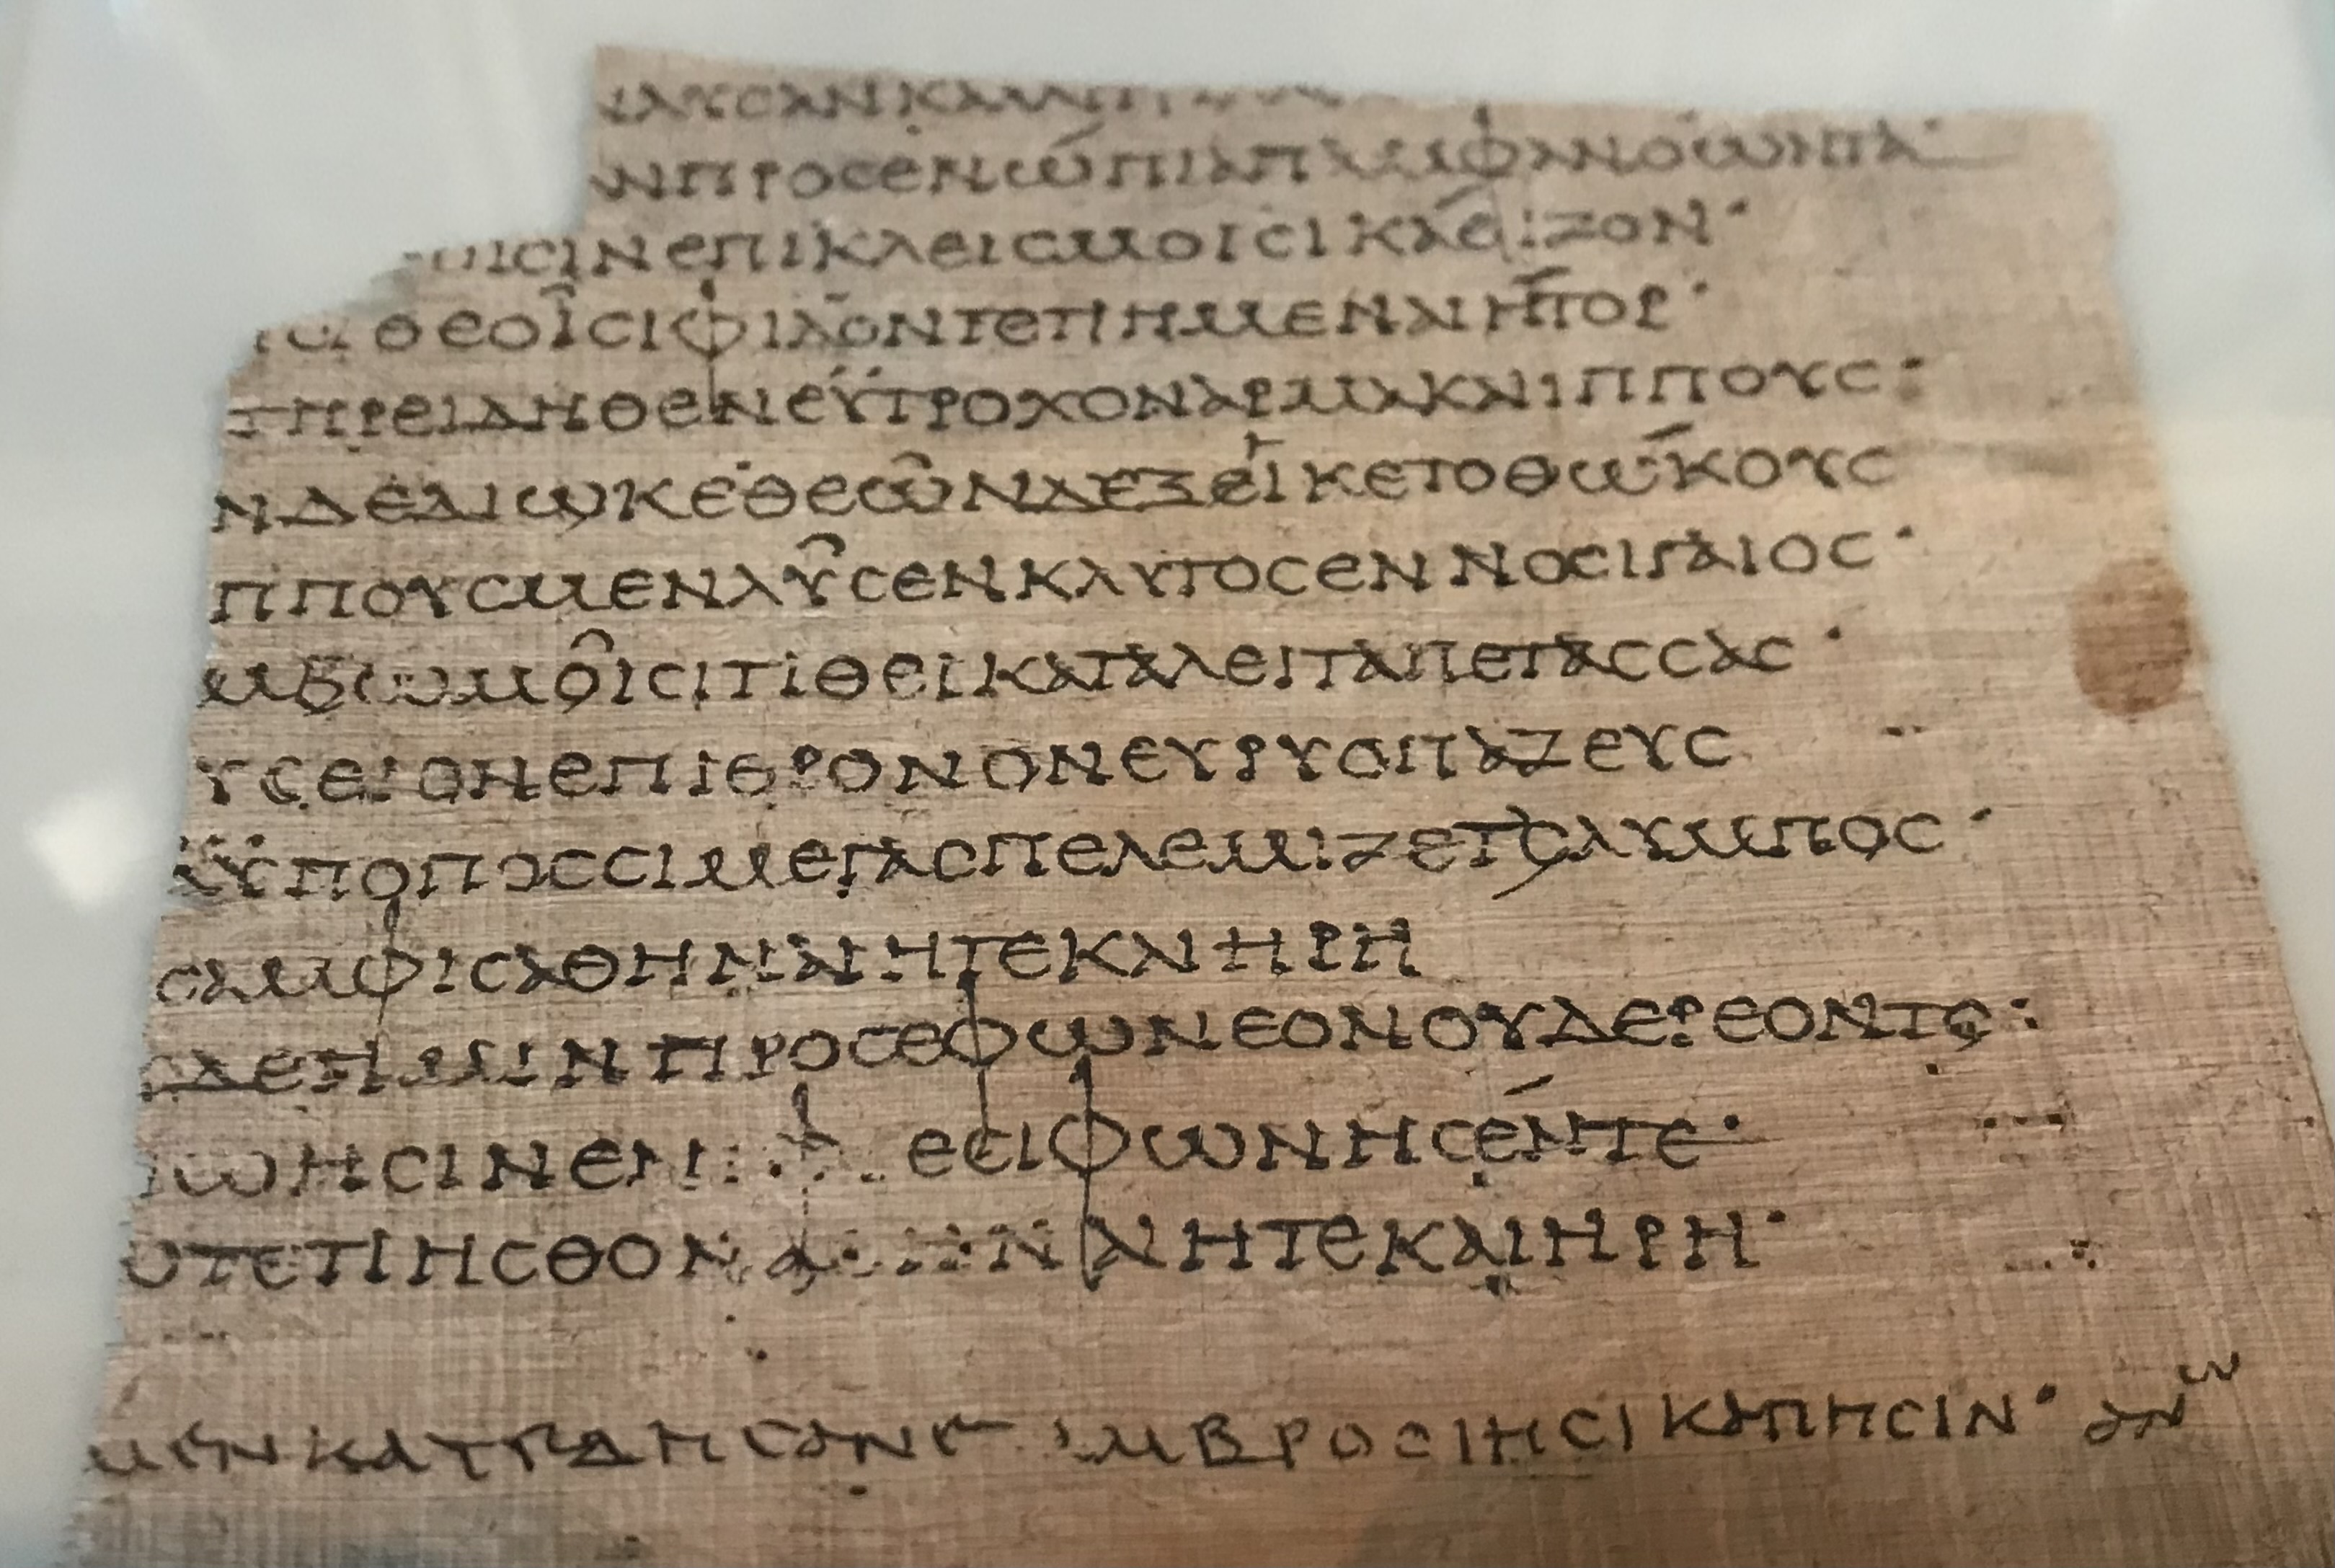 ΛΥΣΑΝΚΑΛΛΙΤ
ΝΠΡΟΣΕΝΩΠΙΑΠΑΜΦΑΝΟΩΝΤΑ·
ΟΙΣΙΝΕΠΙΚΛΕΙΣΜΟΙΣΙΚΑΘΙΖΟΝ·
ΘΕΟΙΣΙΦΙΛΟΝΤΕΤΙΗΜΕΝΑΙΗΤΟΡ·
ΤΗΡΕΙΔΗΘΕΝΕΫΤΡΟΧΟΝΑΡΜΑΚΑΙΙΠΠΟΥΣ:
ΝΔΕΔΙΩΚΕΘΕΩΝΔΕΞΕΙΚΕΤΟΘΩΚΟΥΣ
ΠΠΟΥΣΜΕΝΛΥΣΕΝΚΛΥΤΟΣΕΝΝΟΣΙΓΑΙΟΣ·
ΜΒΩΜΟΙΣΙΤΙΘΕΙΚΑΤΑΛΕΙΤΑΠΕΤΑΣΣΑΣ·
ΥΣΕΙΟΝΕΠΙΘΡΟΝΟΝΕΥΡΥΟΠΑΖΕΥΣ
ΫΠΟΠΟΣΣΙΜΕΓΑΣΠΕΛΕΜΙΖΕΤΟΛΥΜΠΟΣ·
ΣΑΜΦΙΣΑΘΗΝΑΙΗΤΕΚΑΙΗΡΗ
ΜΙΝΠΡΟΣΕΦΩΝΕΟΝΟΥΔΕΡΕΟΝΤΟ:
ΩΗΣΙΝΕΝΙΦ ΕΣΙΦΩΝΗΣΕΝΤΕ·
ΩΤΕΤΙΗΣΘΟΝΑΘΗΝΑΙΗΤΕΚΑΙΗΡΗ·
ΜΕΝΚΑΤΕΔΗΣΑΝΕΠ ΑΜΒΡΟΣΙΗΣΙΚΑΠΗΣΙΝ· ΑΝΩ